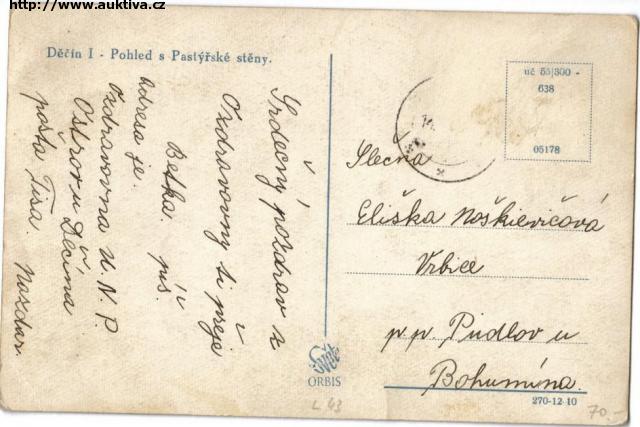 http://www.auktiva.cz
Děčín I - Pohled s Pastýřské stěny.
uč 55|300 -
638
05178
Srdečný pozdrav z
Ozdravovny ti přeje
Betka. piš.
adresa je.
ozdravovna U. N. P.
Ostrov u Děčína
pošta Tisá. Nazdar.
Slečna
Eliška Noškievičová
Vrbice
p.p. Pudlov u
Bohumína.
Svět
ORBIS
270-12-10
L 43
70,-